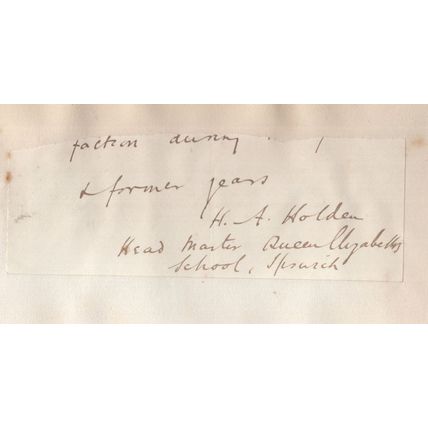 faction during
& former years
H. A. Holden
Head Master Queen Elizabeths
School, Ipswich